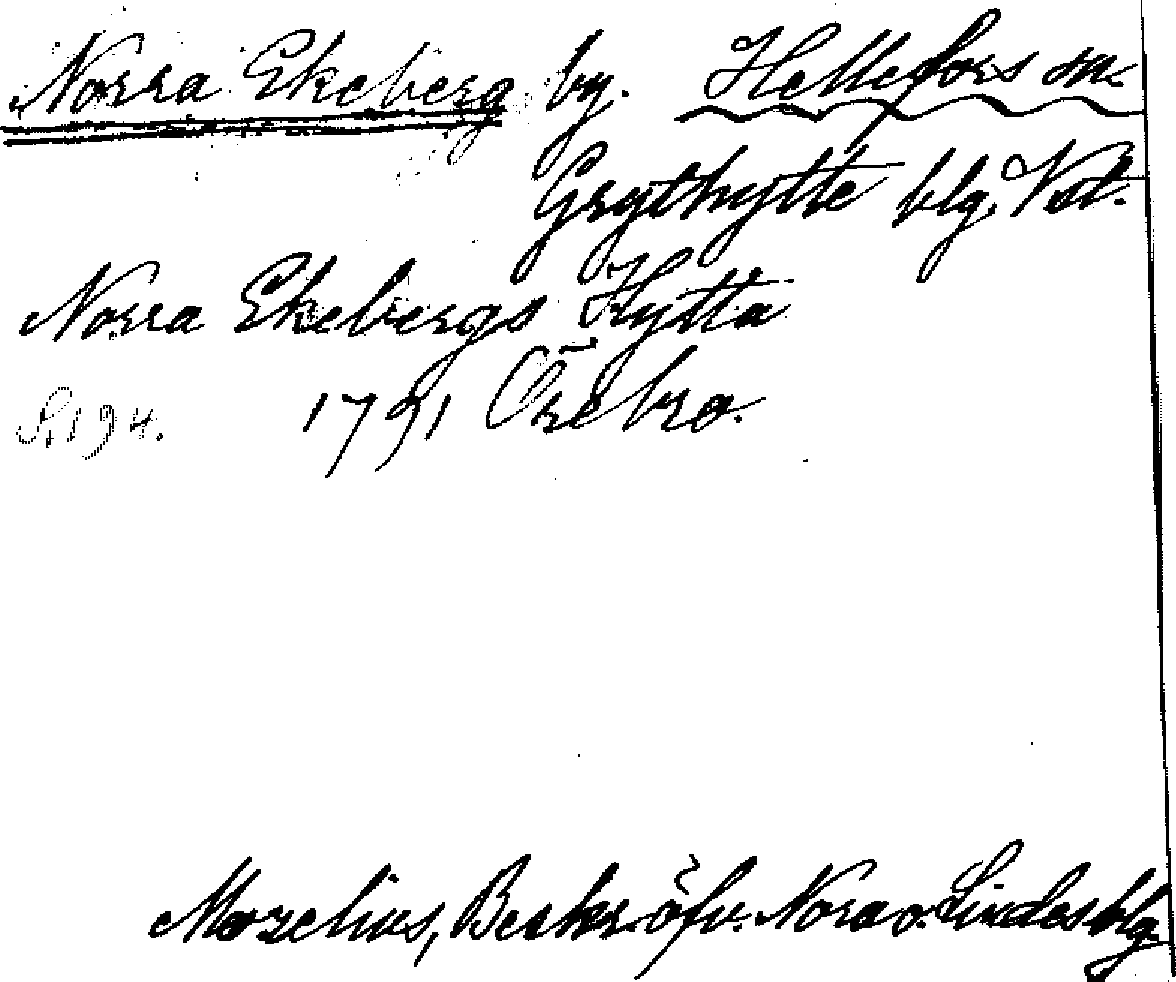 Norra Ekeberg by. Hellefors sn.
Grythytte blg. Vstl.
Norra Ekebergs Hytta
S. 194. 1791 Örebro.
Mozelius, Beskr. öfv. Nora o. Lindes blg.